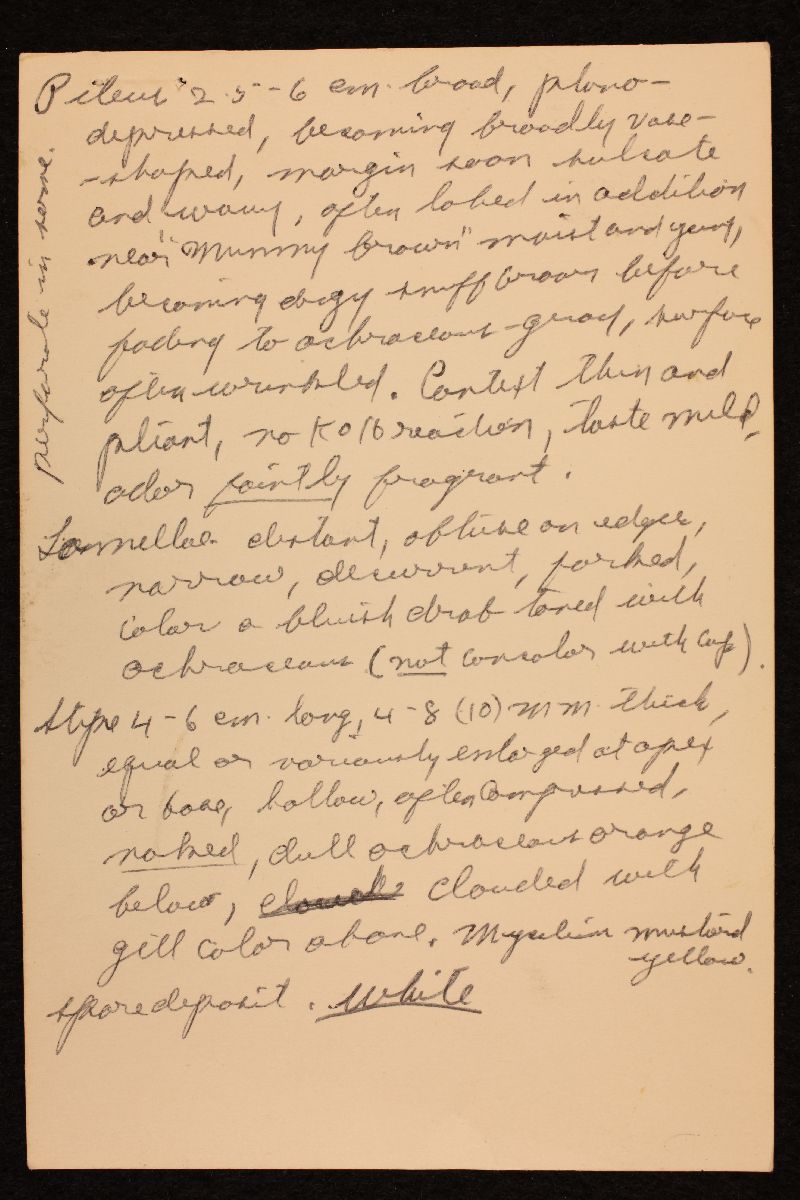 Pileus 2.5-6 cm. broad, plano-
depressed, becoming broadly vase-
-shaped, margin soon sulcate
and wavy, often lobed in addition
near "Mummy brown" moist and young,
becoming dingy snuff brown before
fading to ochraceous-gray, surface
often wrinkled. Context thin and
pliant, no KOH reaction, taste mild,
odor faintly fragrant.
perforate in some.
Lamellae distant, obtuse on edges,
narrow, decurrent, forked,
color a bluish drab toned with
ochraceous (not concolor with cap).
stipe 4-6 cm. long, 4-8 (10) mm. thick,
equal or variously enlarged at apex
or base, hollow, often compressed,
naked, dull ochraceous orange
below, clouded with
gill color above. Mycelium mustard
yellow.
spore deposit. white